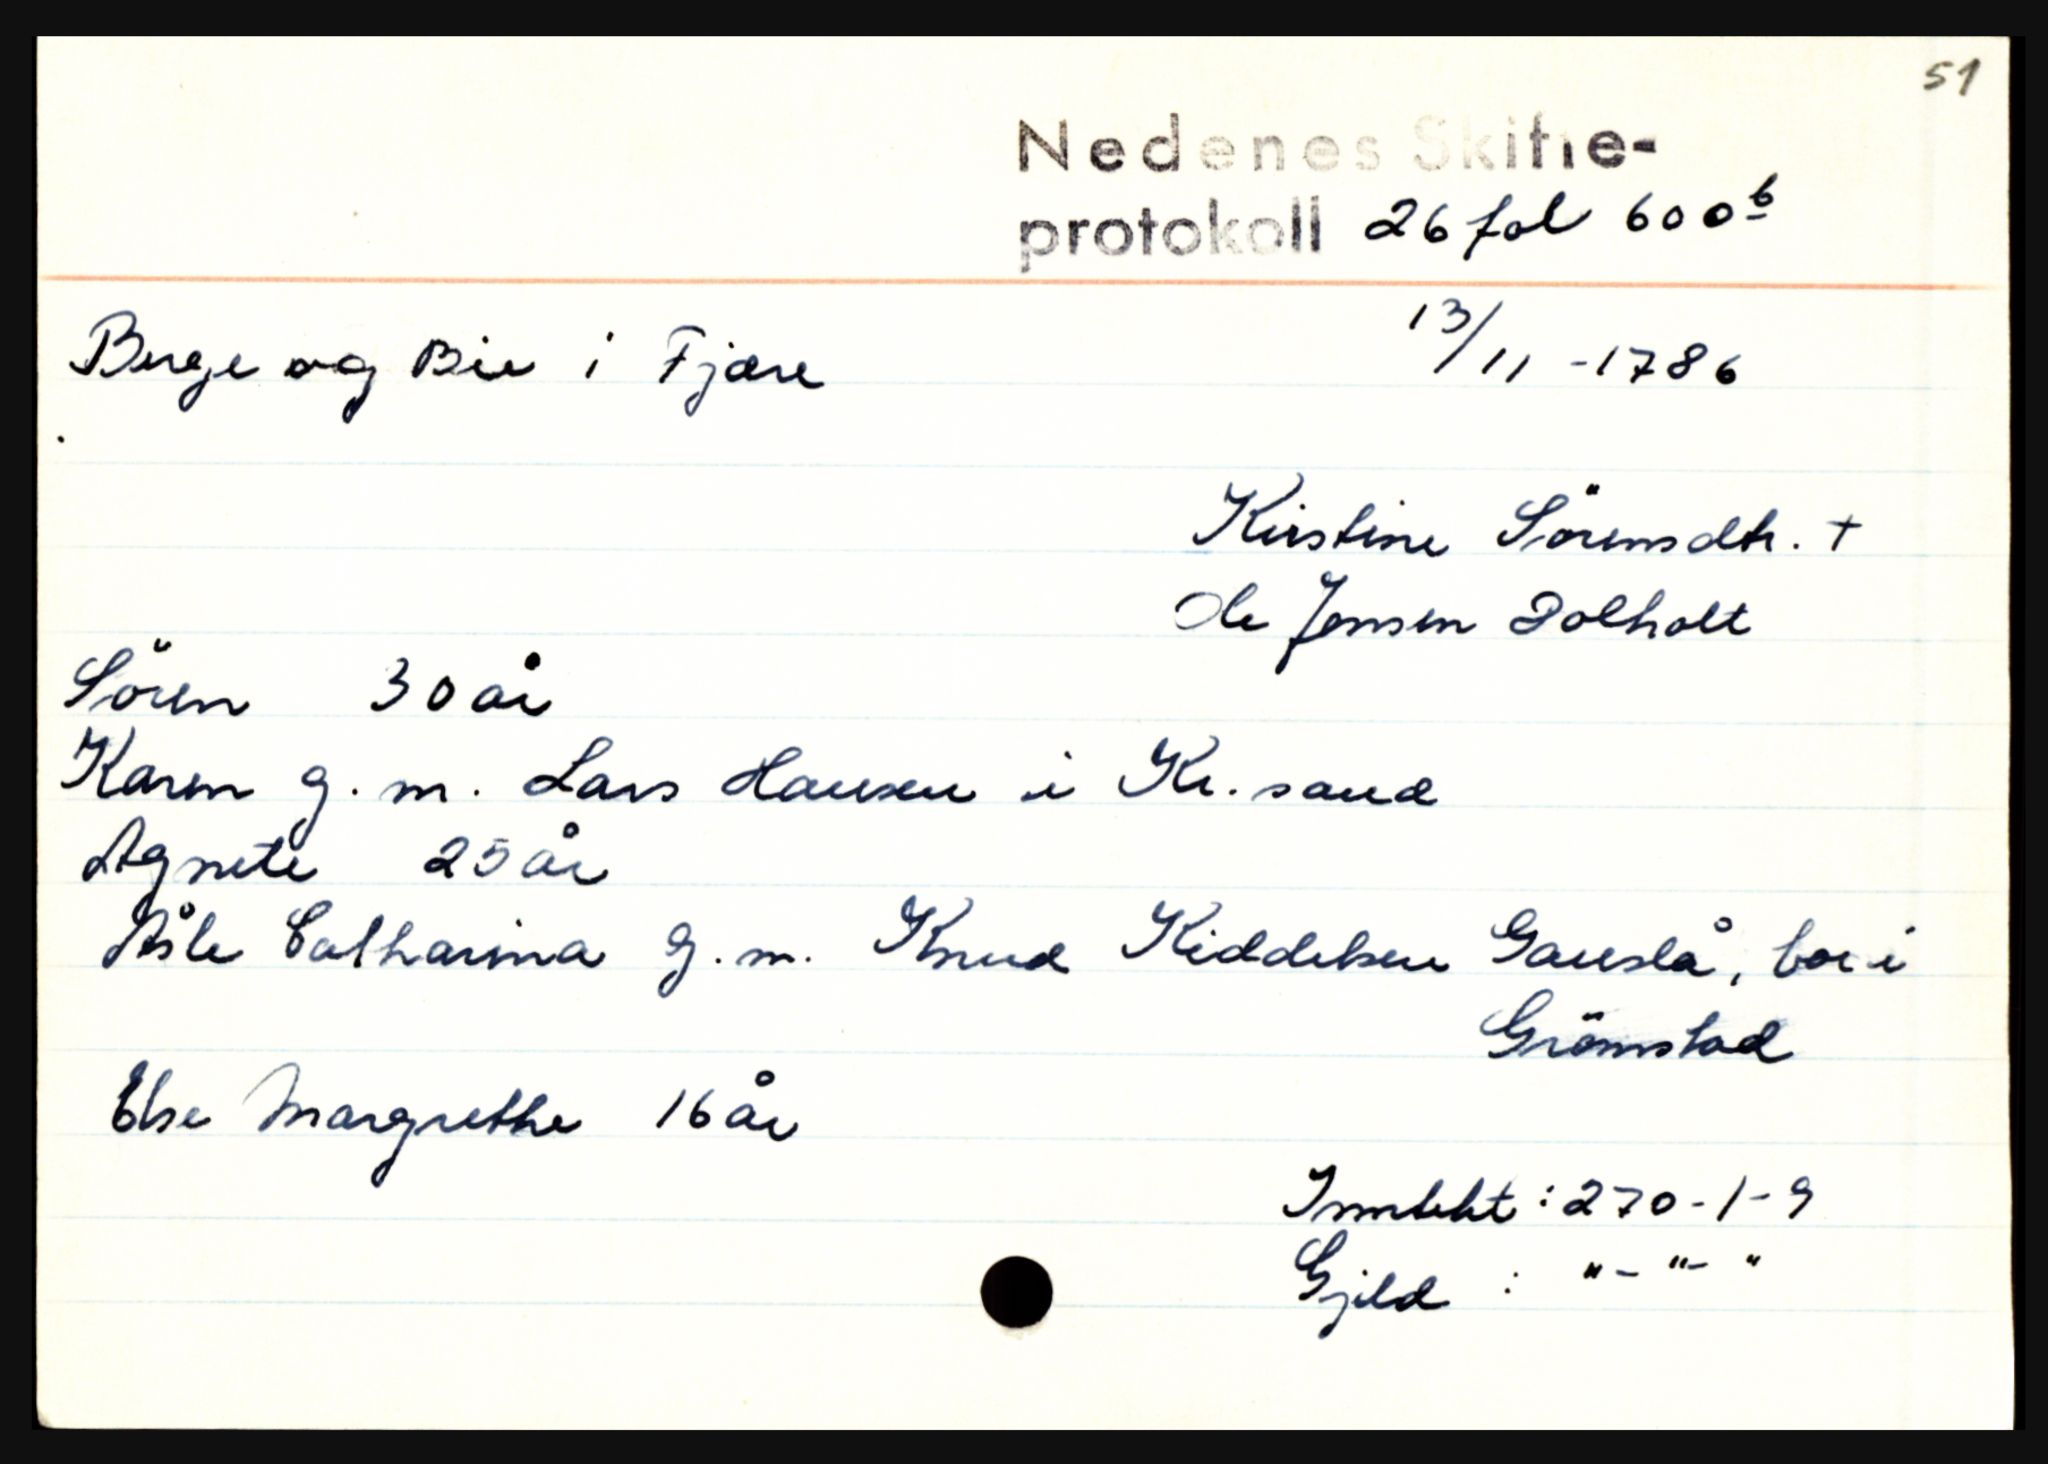 51
Nedenes Skifte-
protokoll 26 fol 600 b
Berge og Bie i Fjære
13/11 - 1786
Kirstine Sörensdtr. +
Ole Jensen Dolholt
Sören 30 år
Karen g. m. Lars Hansen i Kr. sand
Agnete 25 år
Åsle Catharina g. m. Knud Kiddelsen Gauslå, bor i
Grömstad
Else Margrethe 16 år
Inntekt : 270 - 1 - 9
Gjeld : " - " - "